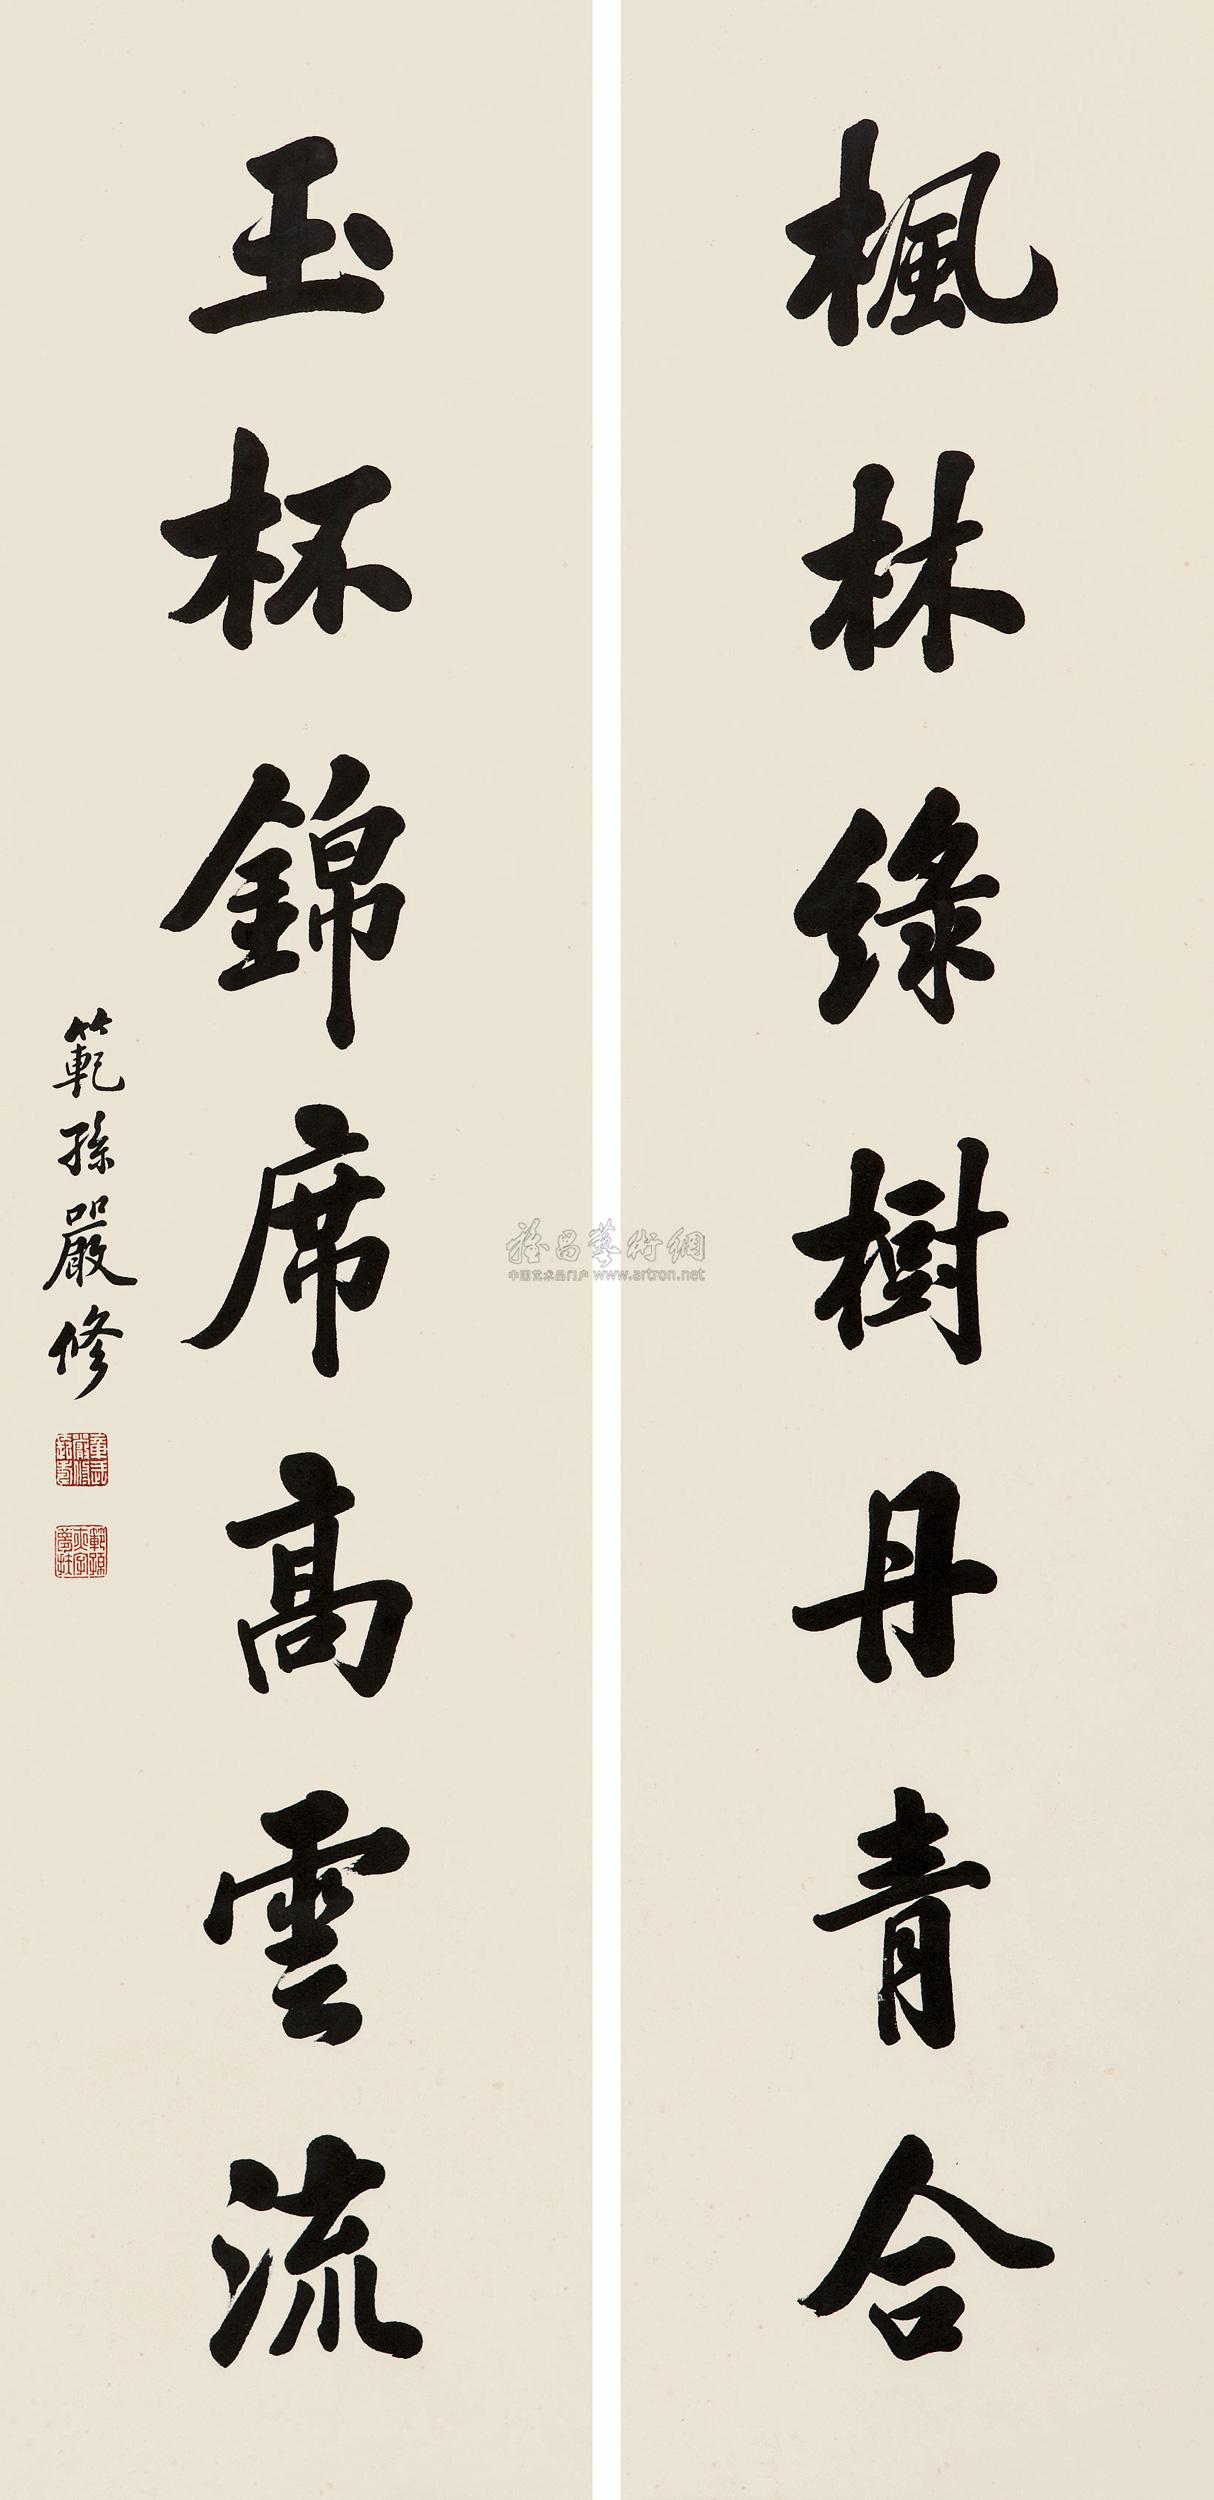 楓林綠樹丹青合
玉杯錦席高雲流
範孫嚴修
雅昌藝術網
中国艺术品门户 www.artron.net